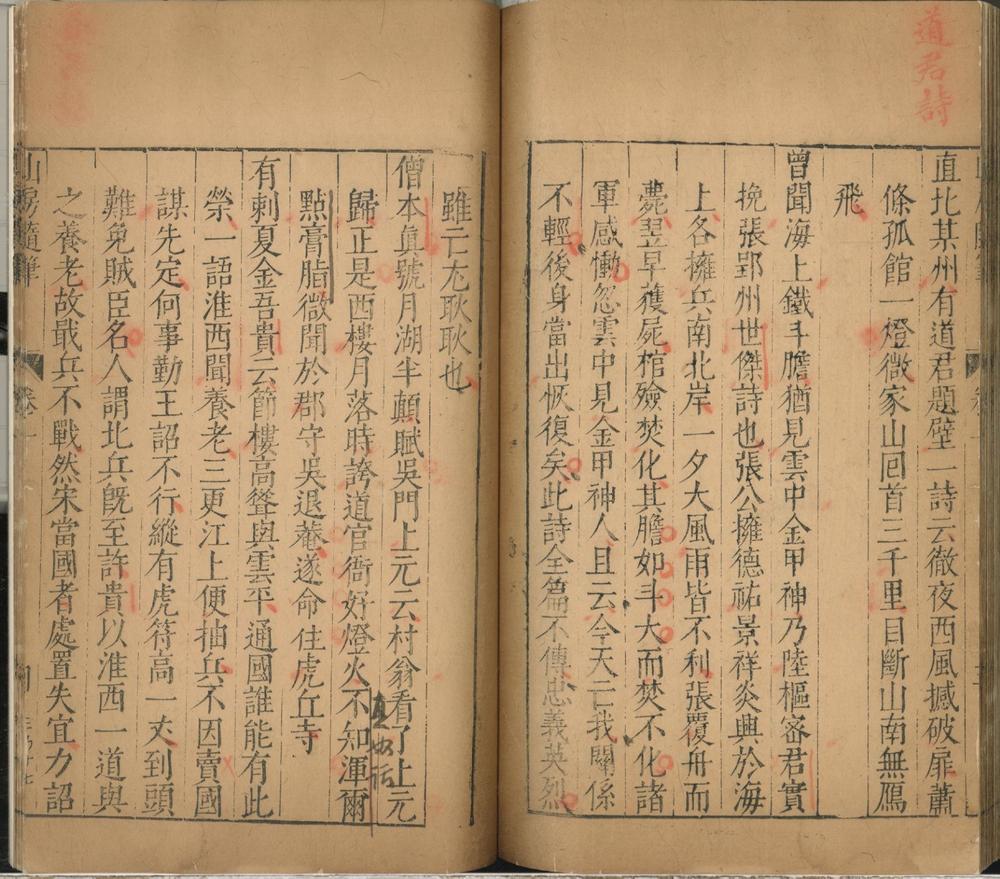 道君詩
直北某州有道君題壁一詩云徹夜西風撼破扉蕭
條孤館一燈微家山回首三千里目斷山南無鴈
飛
曾聞海上鐵斗膽猶見雲中金甲神乃陸樞密君實
挽張郢州世傑詩也張公擁德祐景祥炎興於海
上各擁兵南北岸一夕大風雨皆不利張覆舟而
薨翌早獲屍棺殮焚化其膽如斗大而焚不化諸
軍感慟忽雲中見金甲神人且云今天亡我關係
不輕後身當出恢復矣此詩全篇不傳忠義英烈
雖亡尤耿耿也
僧本真號月湖半顛賦吳門上元云村翁看了上元
歸正是西樓月落時誇道官衙好燈火不知渾爾
點膏脂微聞於郡守吳退菴遂命住虎丘寺
有剌夏金吾貴云節樓高聳與雲平通國誰能有此
榮一語淮西聞養老三更江上便抽兵不因賣國
謀先定何事勤王詔不行縱有虎符高一丈到頭
難免賊臣名人謂北兵旣至許貴以淮西一道與
之養老故戢兵不戰然宋當國者處置失宜力詔
山房隨筆
卷一